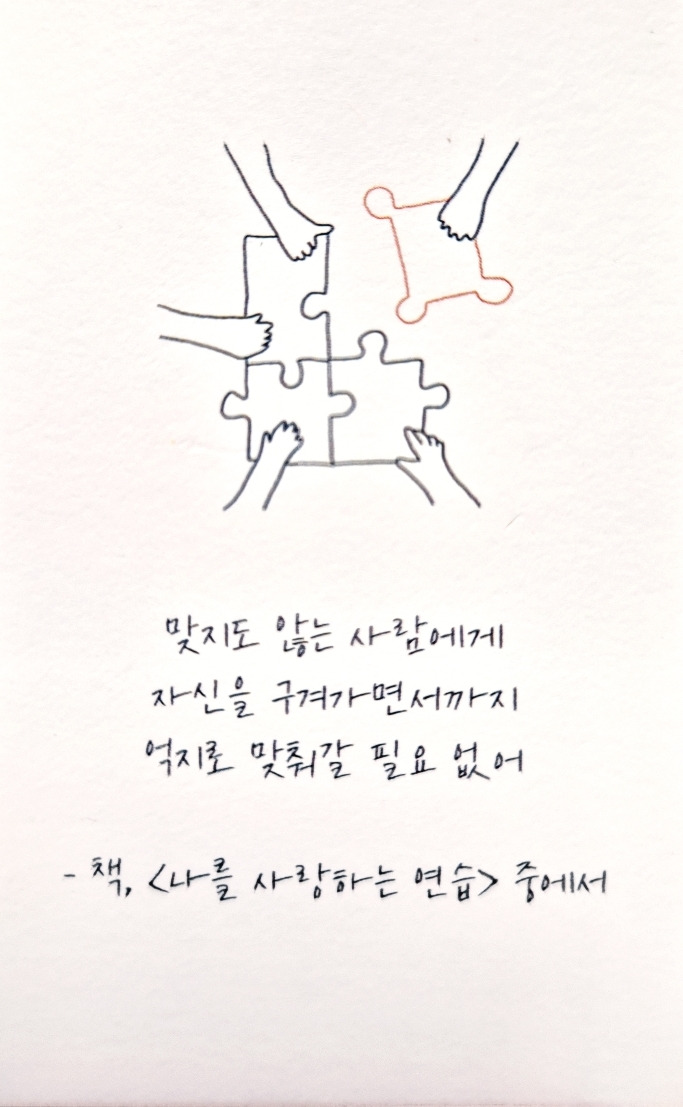 맞지도 않는 사람에게
자신을 구겨가면서까지
억지로 맞춰갈 필요 없어
- 책, <나를 사랑하는 연습> 중에서